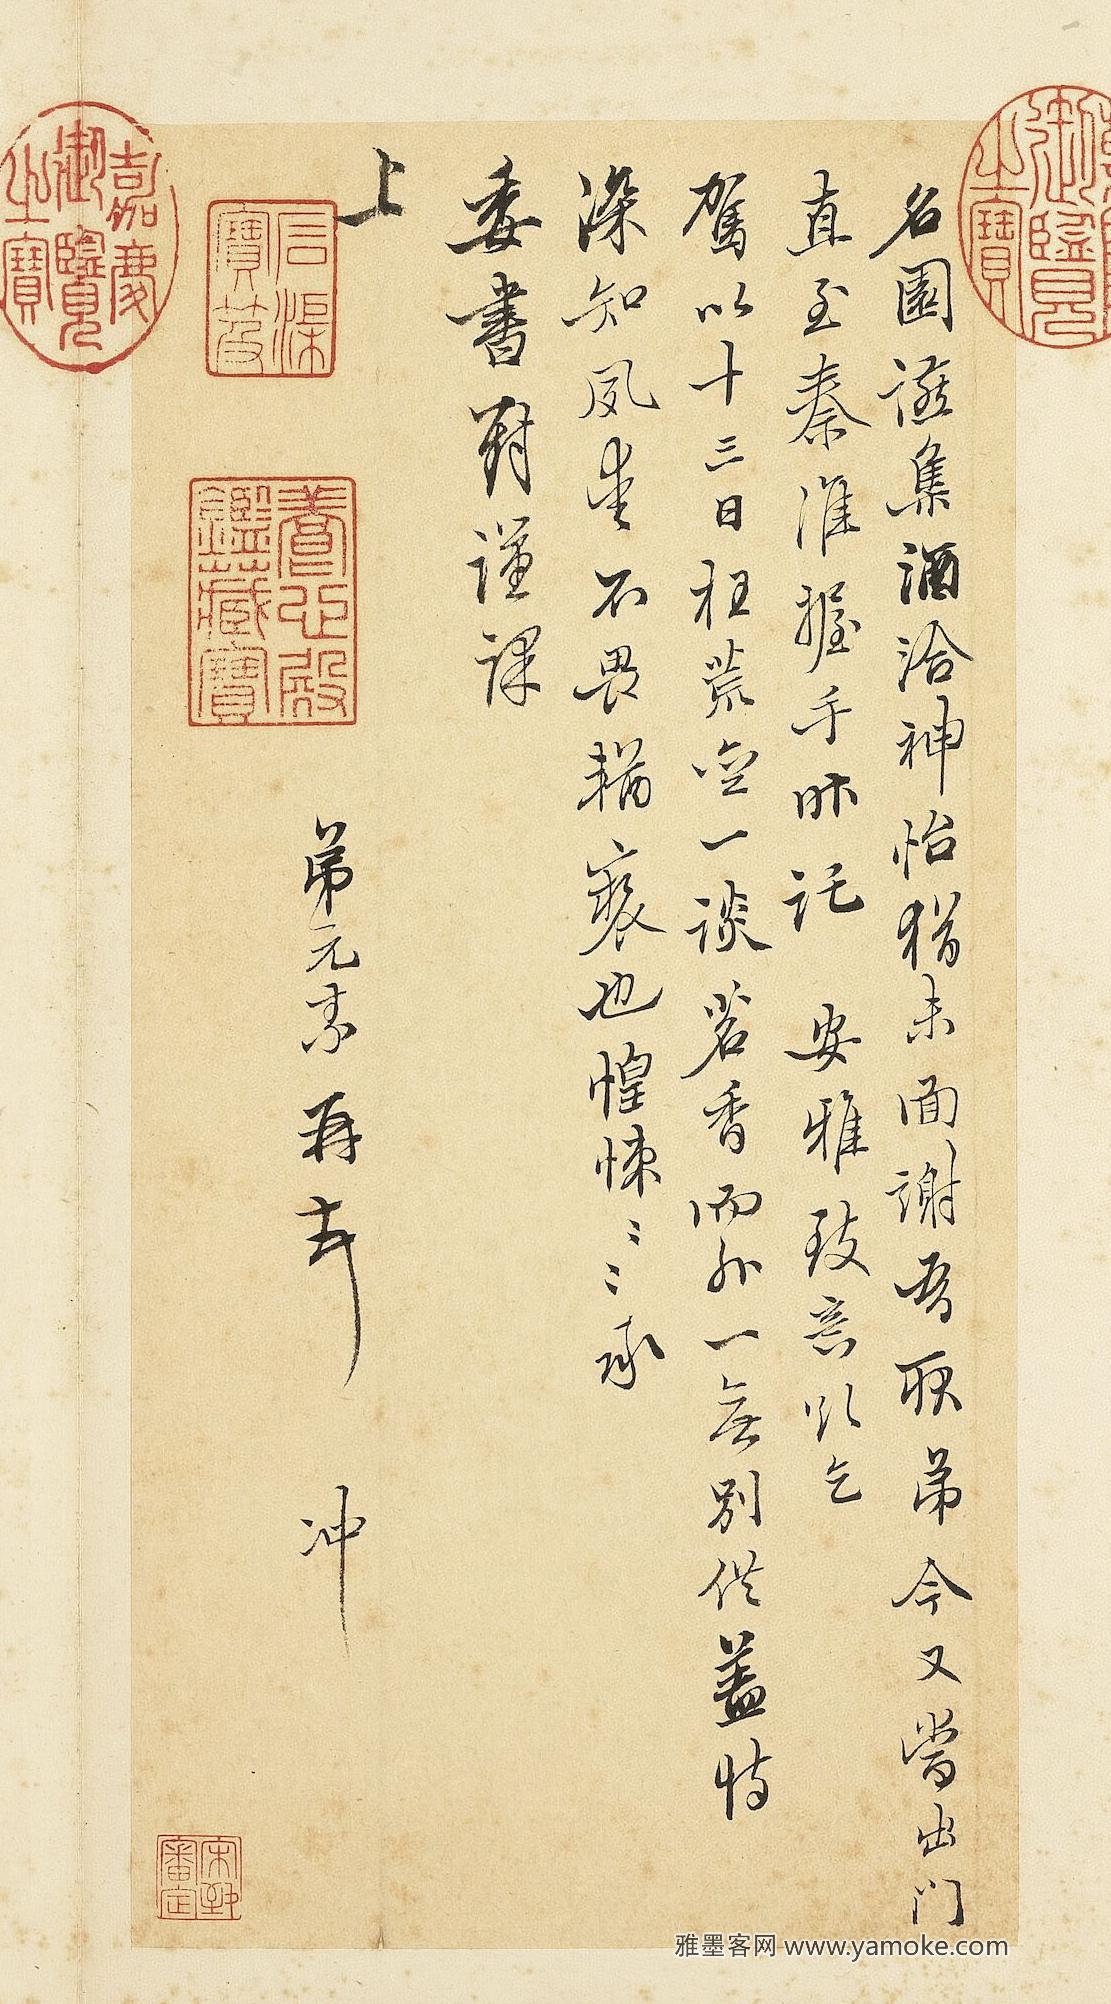 名園讌集酒洽神怡猶未面謝吾耿弟今又嘗出門
直至秦淮握手時託安雅致意以乞
駕以十三日枉荒齋一談茗香而外一無別供蓋恃
深知夙愛不畏褻也惶悚〻〻承
委書對謹課
上
弟元素再書
冲
嘉慶御覽之寶
石渠寶笈
養心殿鑑藏寶
御覽之寶
審定
雅墨客网 www.yamoke.com